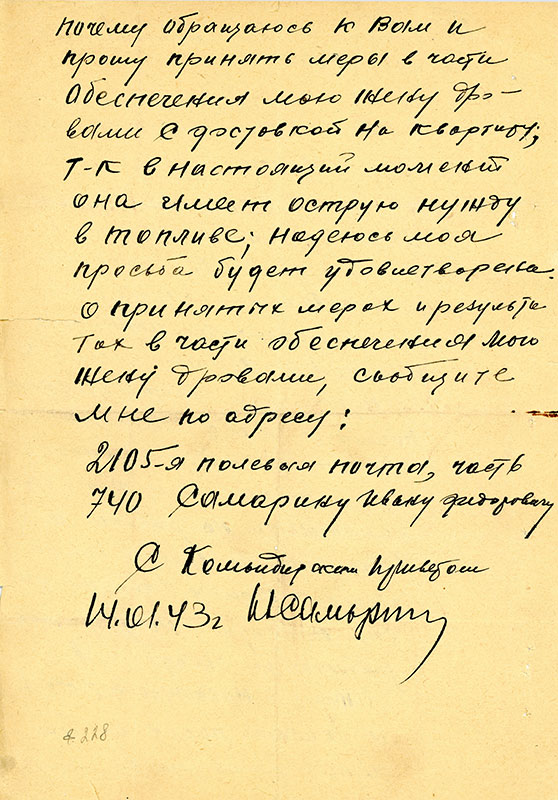 почему обращаюсь к Вам и
прошу принять меры в части
обеспечения мою жену дро-
вами с доставкой на квартиру;
т-к в настоящий момент
она имеет острую нужду
в топливе; надеюсь моя
просьба будет удовлетворена.
о принятых мерах и результа
тах в части обеспечения мою
жену дровами, сообщите
мне по адресу:
2105-я полевая почта, часть
740 Самарину Ивану Федоровичу
С Командирским приветом
14.01.43г ИСамарин
228